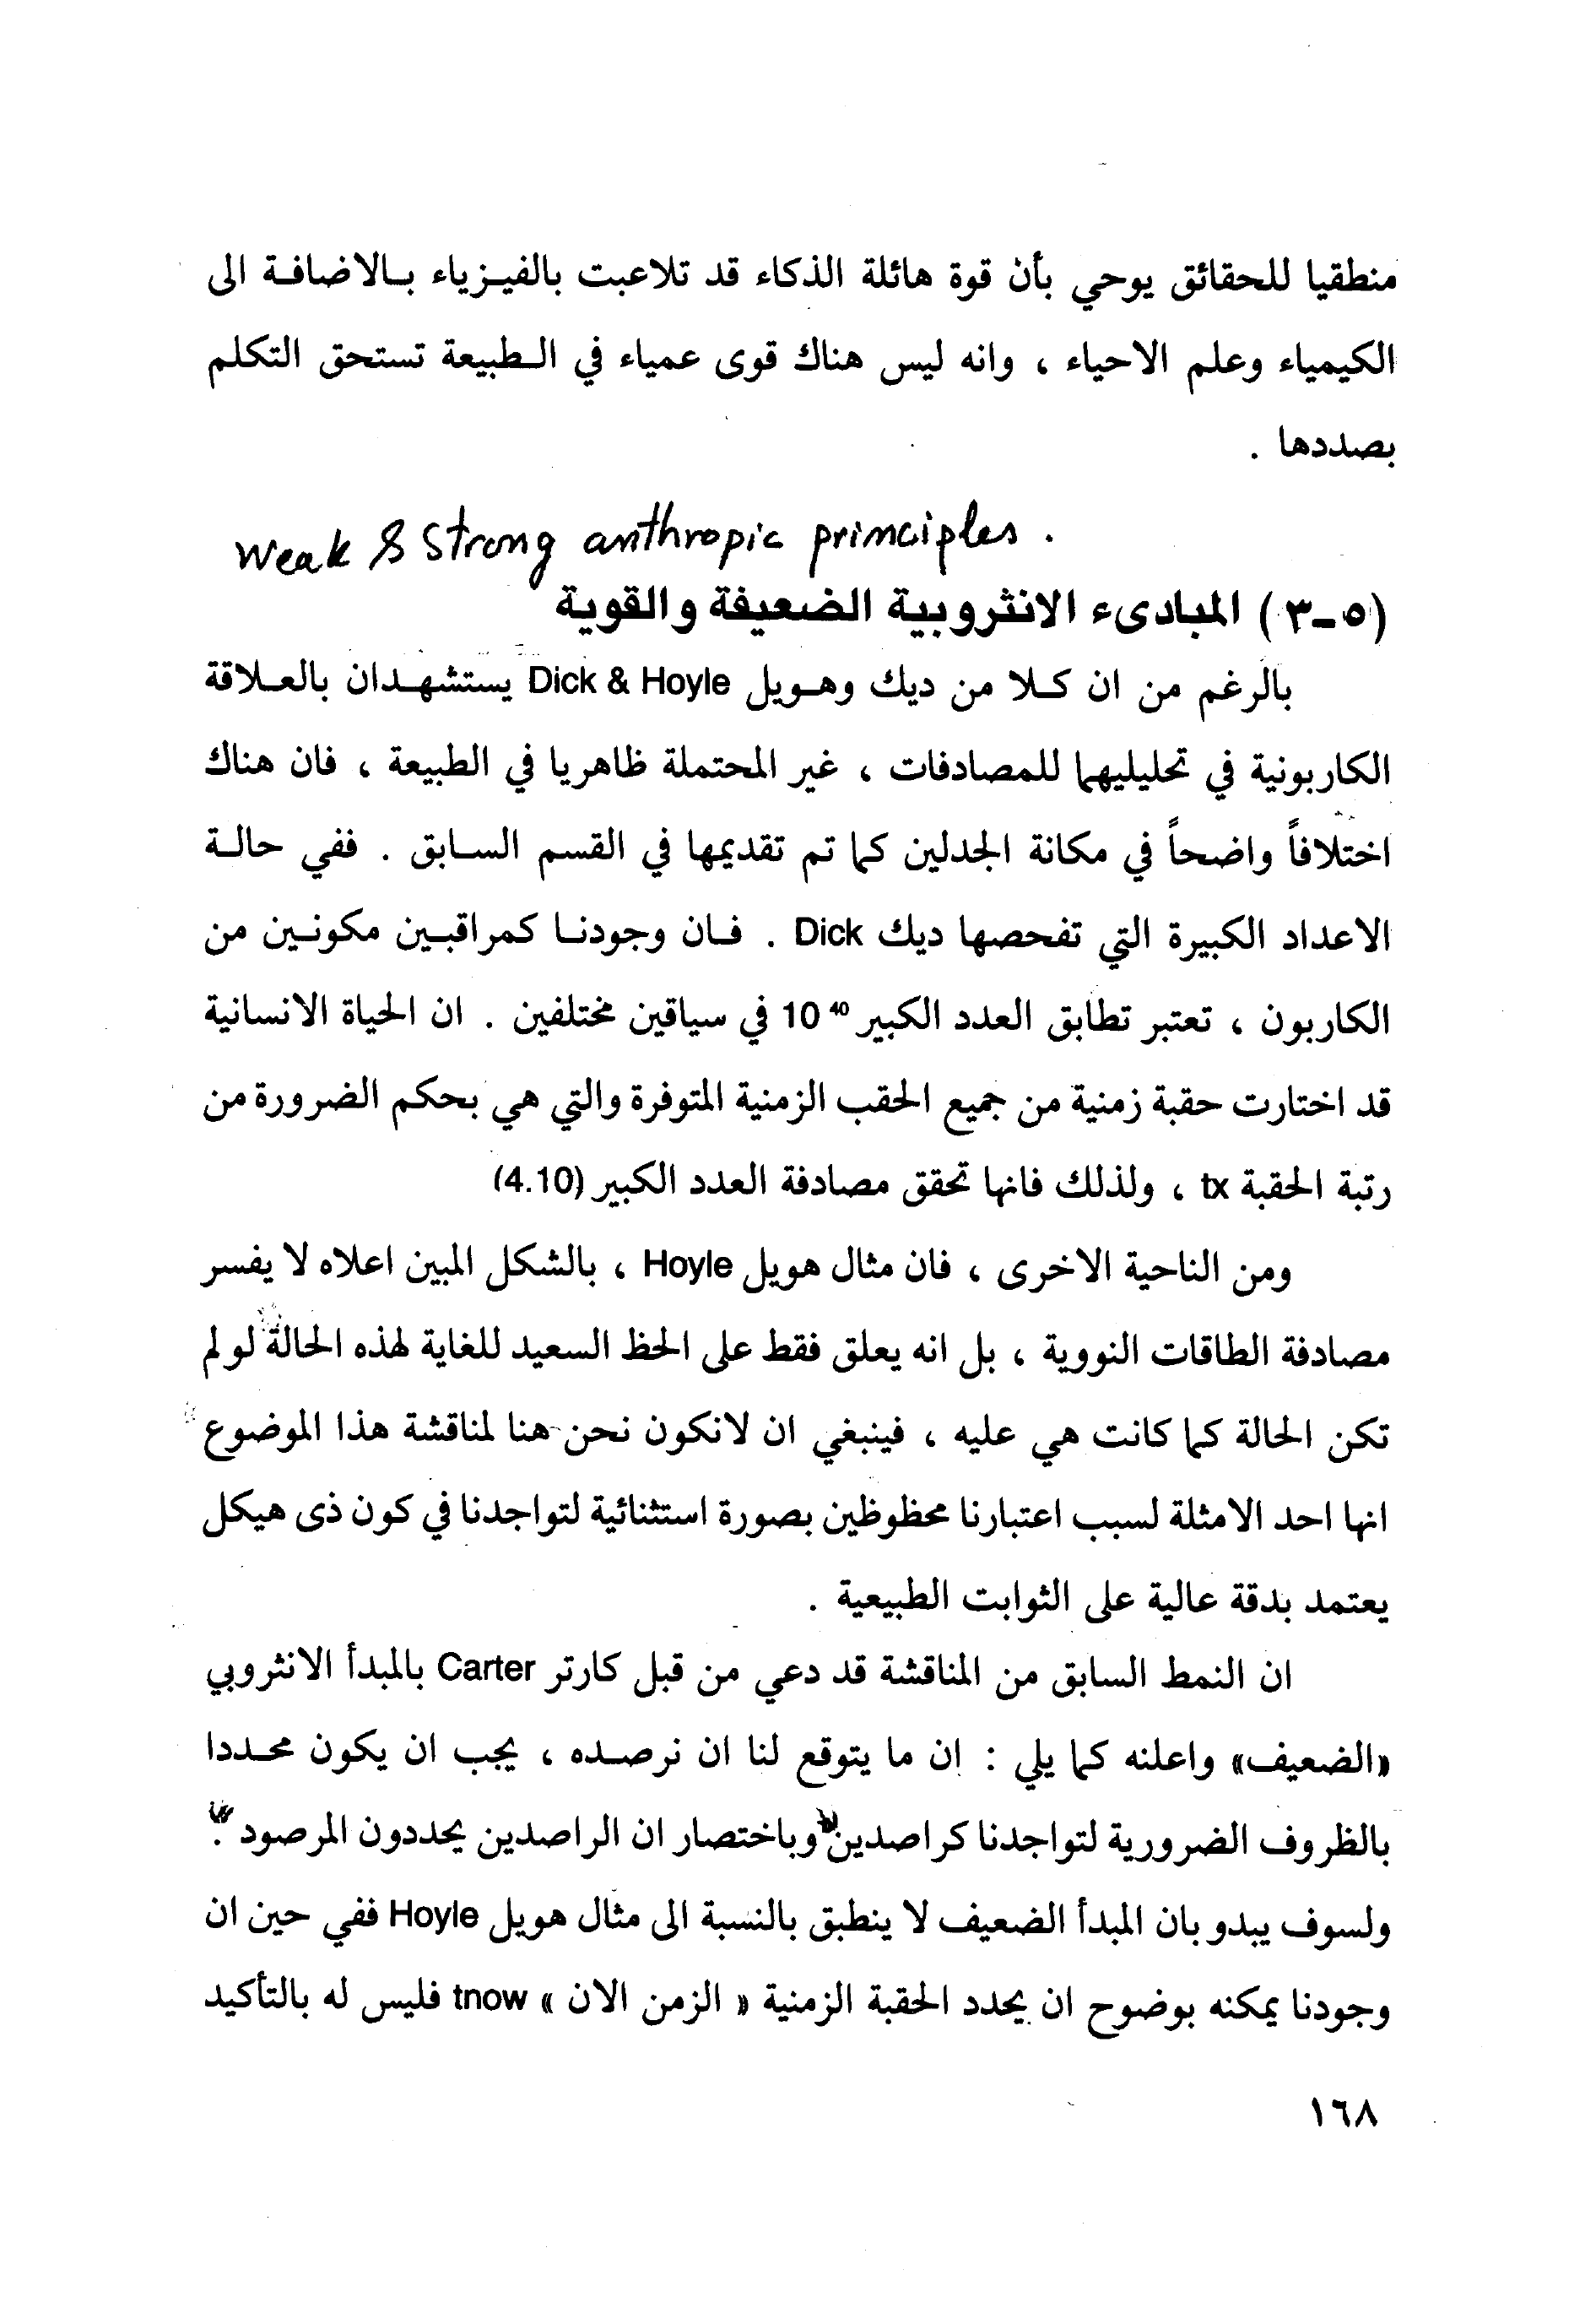 منطقيا للحقائق يوحي بأن قوة هائلة الذكاء قد تلاعبت بالفيزياء بالاضافة الى
الكيمياء وعلم الاحياء ، وانه ليس هناك قوى عمياء في الطبيعة تستحق التكلم
بصددها .
Weak & Strong anthropic principles .
(٥-٣) المبادىء الانثروبية الضعيفة والقوية
بالرغم من ان كلا من ديك وهويل Dick & Hoyle يستشهدان بالعلاقة
الكاربونية في تحليليهما للمصادفات ، غير المحتملة ظاهريا في الطبيعة ، فان هناك
اختلافاً واضحاً في مكانة الجدلين كما تم تقديمها في القسم السابق . ففي حالة
الاعداد الكبيرة التي تفحصها ديك Dick . فان وجودنا كمراقبين مكونين من
الكاربون ، تعتبر تطابق العدد الكبير 10⁴⁰ في سياقين مختلفين . ان الحياة الانسانية
قد اختارت حقبة زمنية من جميع الحقب الزمنية المتوفرة والتي هي بحكم الضرورة من
رتبة الحقبة tx ، ولذلك فانها تحقق مصادفة العدد الكبير (4.10)
ومن الناحية الاخرى ، فان مثال هويل Hoyle ، بالشكل المبين اعلاه لا يفسر
مصادفة الطاقات النووية ، بل انه يعلق فقط على الحظ السعيد للغاية لهذه الحالة لو لم
تكن الحالة كما كانت هي عليه ، فينبغي ان لانكون نحن هنا لمناقشة هذا الموضوع
انها احد الامثلة لسبب اعتبارنا محظوظين بصورة استثنائية لتواجدنا في كون ذى هيكل
يعتمد بدقة عالية على الثوابت الطبيعية .
ان النمط السابق من المناقشة قد دعي من قبل كارتر Carter بالمبدأ الانثروبي
«الضعيف» واعلنه كما يلي : إن ما يتوقع لنا ان نرصده ، يجب ان يكون محددا
بالظروف الضرورية لتواجدنا كراصدين" وباختصار ان الراصدين يحددون المرصود".
ولسوف يبدو بان المبدأ الضعيف لا ينطبق بالنسبة الى مثال هويل Hoyle ففي حين ان
وجودنا يمكنه بوضوح ان يحدد الحقبة الزمنية « الزمن الان » tnow فليس له بالتأكيد
١٦٨